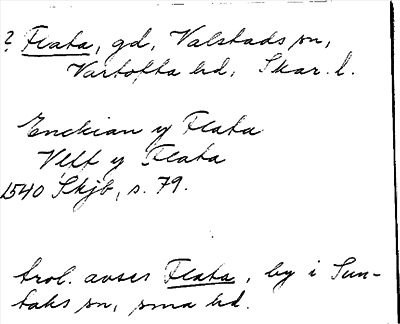 ? Flata, gd, Valstads sn,
Vartofta hd, Skar. l.
Enekian y Flata
Velf y Flata
1540 Skjb, s. 79.
trol. avses Flata, by i Sun-
taks sn, sma hd.